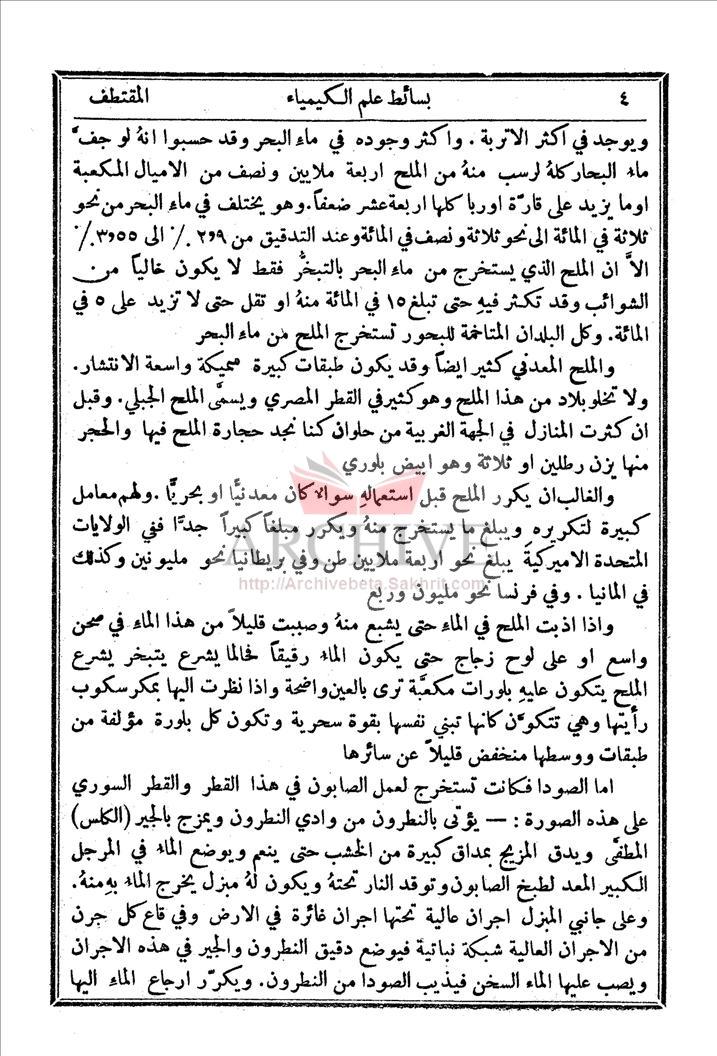 ٤ بسائط علم الكيمياء المقتطف
ويوجد في اكثر الاتربة . واكثر وجوده في ماء البحر وقد حسبوا انهُ لو جفَّ
ماء البحار كلهُ لرسب منهُ من الملح اربعة ملايين ونصف من الاميال المكعبة
او ما يزيد على قارَّة اوربا كلها اربعة عشر ضعفاً . وهو يختلف في ماء البحر من نحو
ثلاثة في المائة الى نحو ثلاثة ونصف في المائة وعند التدقيق من ٢٫٩ ٪ الى ٣٫٥٥ ٪
الاَّ ان الملح الذي يستخرج من ماء البحر بالتبخُّر فقط لا يكون خالياً من
الشوائب وقد تكثر فيهِ حتى تبلغ ١٥ في المائة منهُ او تقل حتى لا تزيد على ٥ في
المائة . وكل البلدان المتاخمة للبحور تستخرج الملح من ماء البحر
والملح المعدني كثير ايضاً وقد يكون طبقات كبيرة سميكة واسعة الانتشار .
ولا تخلو بلاد من هذا الملح وهو كثير في القطر المصري ويسمَّى الملح الجبلي . وقبل
ان كثرت المنازل في الجهة الغربية من حلوان كنا نجد حجارة الملح فيها والحجر
منها يزن رطلين او ثلاثة وهو ابيض بلوري
والغالب ان يكرر الملح قبل استعمالهِ سوالا كان معدنيًّا او بحريًّا . ولهم معامل
كبيرة لتكريره ويبلغ ما يستخرج منهُ ويكرر مبلغاً كبيراً جدًّا ففي الولايات
المتحدة الاميركية يبلغ نحو اربعة ملايين طن وفي بريطانيا نحو مليونين وكذلك
في المانيا . وفي فرنسا نحو مليون وربع
واذا اذبت الملح في الماء حتى يشبع منهُ وصببت قليلاً من هذا الماء في صحن
واسع او على لوح زجاج حتى يكون الماء رقيقاً فحالما يشرع يتبخر يشرع
الملح يتكون عليهِ بلورات مكعَّبة ترى بالعين واضحة واذا نظرت اليها بمكرسكوب
رأيتها وهي تتكوَّن كانها تبني نفسها بقوة سحرية وتكون كل بلورة مؤلفة من
طبقات ووسطها منخفض قليلاً عن سائرها
اما الصودا فكانت تستخرج لعمل الصابون في هذا القطر والقطر السوري
على هذه الصورة : — يؤتى بالنطرون من وادي النطرون ويمزج بالجير (الكلس)
المطفَّى ويدق المزيج بمداق كبيرة من الخشب حتى ينعم ويوضع الماء في المرجل
الكبير المعد لطبخ الصابون وتوقد النار تحتهُ ويكون لهُ مبزل يخرج الماء بهِ منهُ .
وعلى جانبي المبزل اجران عالية تحتها اجران غائرة في الارض وفي قاع كل جرن
من الاجران العالية شبكة نباتية فيوضع دقيق النطرون والجير في هذه الاجران
ويصب عليها الماء السخن فيذيب الصودا من النطرون . ويكرّر ارجاع الماء اليها
ARCHIVE
http://Archivebeta.Sakhrit.com